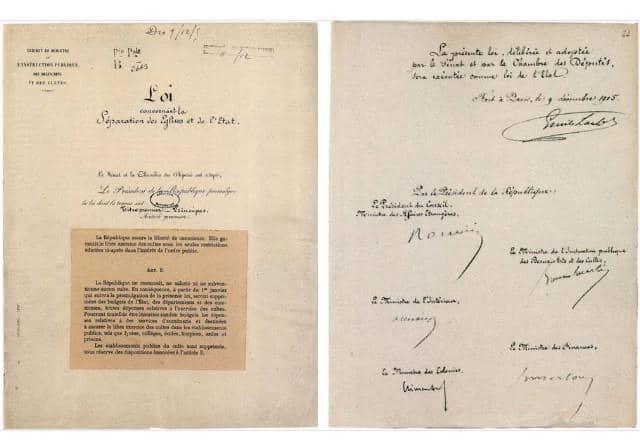 CABINET DU MINISTRE
DE
L'INSTRUCTION PUBLIQUE,
DES BEAUX-ARTS
ET DES CULTES
Loi
concernant la
Séparation des Eglises et de l'Etat.
Le Sénat et la Chambre des Députés ont adopté,
Le Président de la République promulgue
la loi dont la teneur suit
Titre premier — Principes
Article premier.
La République assure la liberté de conscience. Elle ga-
rantit le libre exercice des cultes sous les seules restrictions
édictées ci-après dans l'intérêt de l'ordre public.
Art. 2.
La République ne reconnaît, ne salarie ni ne sub-
ventionne aucun culte. En conséquence, à partir du 1er janvier
qui suivra la promulgation de la présente loi, seront suppri-
mées des budgets de l'Etat, des départements et des com-
munes, toutes dépenses relatives à l'exercice des cultes.
Pourront toutefois être inscrites auxdits budgets les dépen-
ses relatives à des services d'aumônerie et destinées
à assurer le libre exercice des cultes dans les établissements
publics, tels que lycées, collèges, écoles, hospices, asiles et
prisons.
Les établissements publics du culte sont supprimés,
sous réserve des dispositions énoncées à l'article 3.
La présente loi, délibérée et adoptée
par le Sénat et par la Chambre des Députés,
sera exécutée comme loi de l'Etat.
Fait à Paris, le 9 décembre 1905.
Par le Président de la République:
Le Président du Conseil,
Ministre des Affaires Etrangères,
Le Ministre de l'Instruction publique
des Beaux-Arts et des Cultes,
Le Ministre de l'Intérieur,
Le Ministre des Finances,
Le Ministre des Colonies,